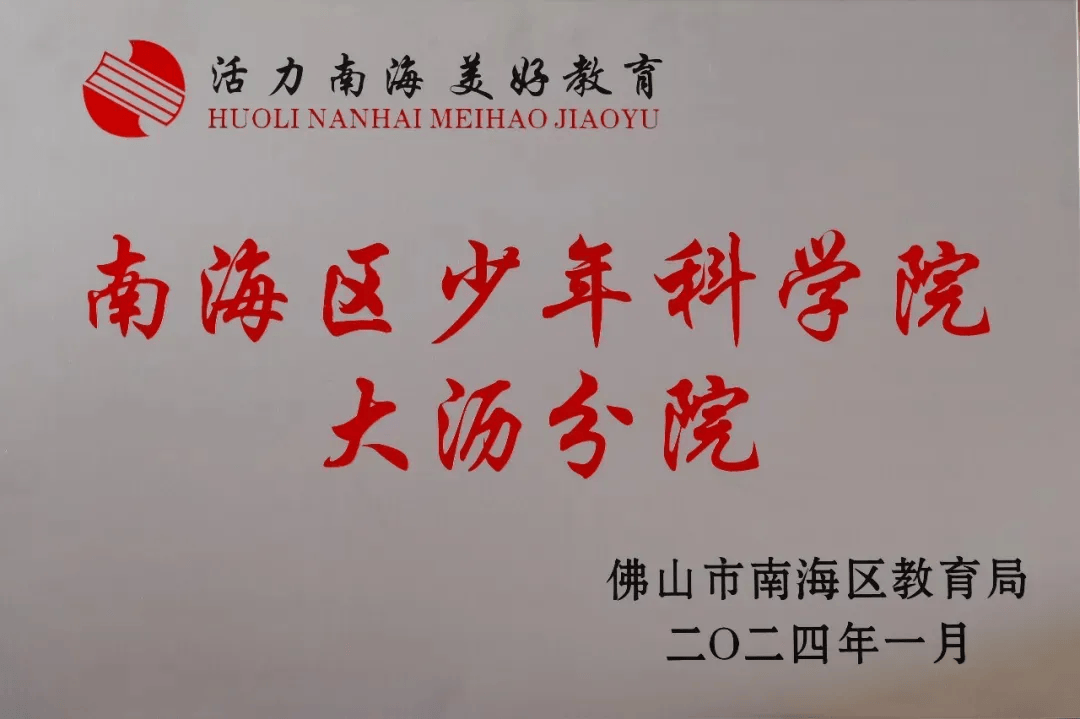 活力南海 美好教育
HUOLI NANHAI MEIHAO JIAOYU
南海区少年科学院
大沥分院
佛山市南海区教育局
二〇二四年一月